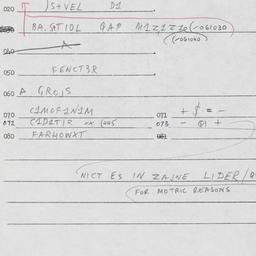 020 S+VEL D1
BA.STIDL QAP M1Z1Z10(-061030
(-061030)
040 A
050 FENCT3R
060 A GROJS
070 C1MOF1N1M 071 + $ = -
072 C1DAT1R xx 073 - Q1 +
080 FARHOWXT
NICT ES IN ZAJNE LIDER/
(FOR MOTRIC REASONS